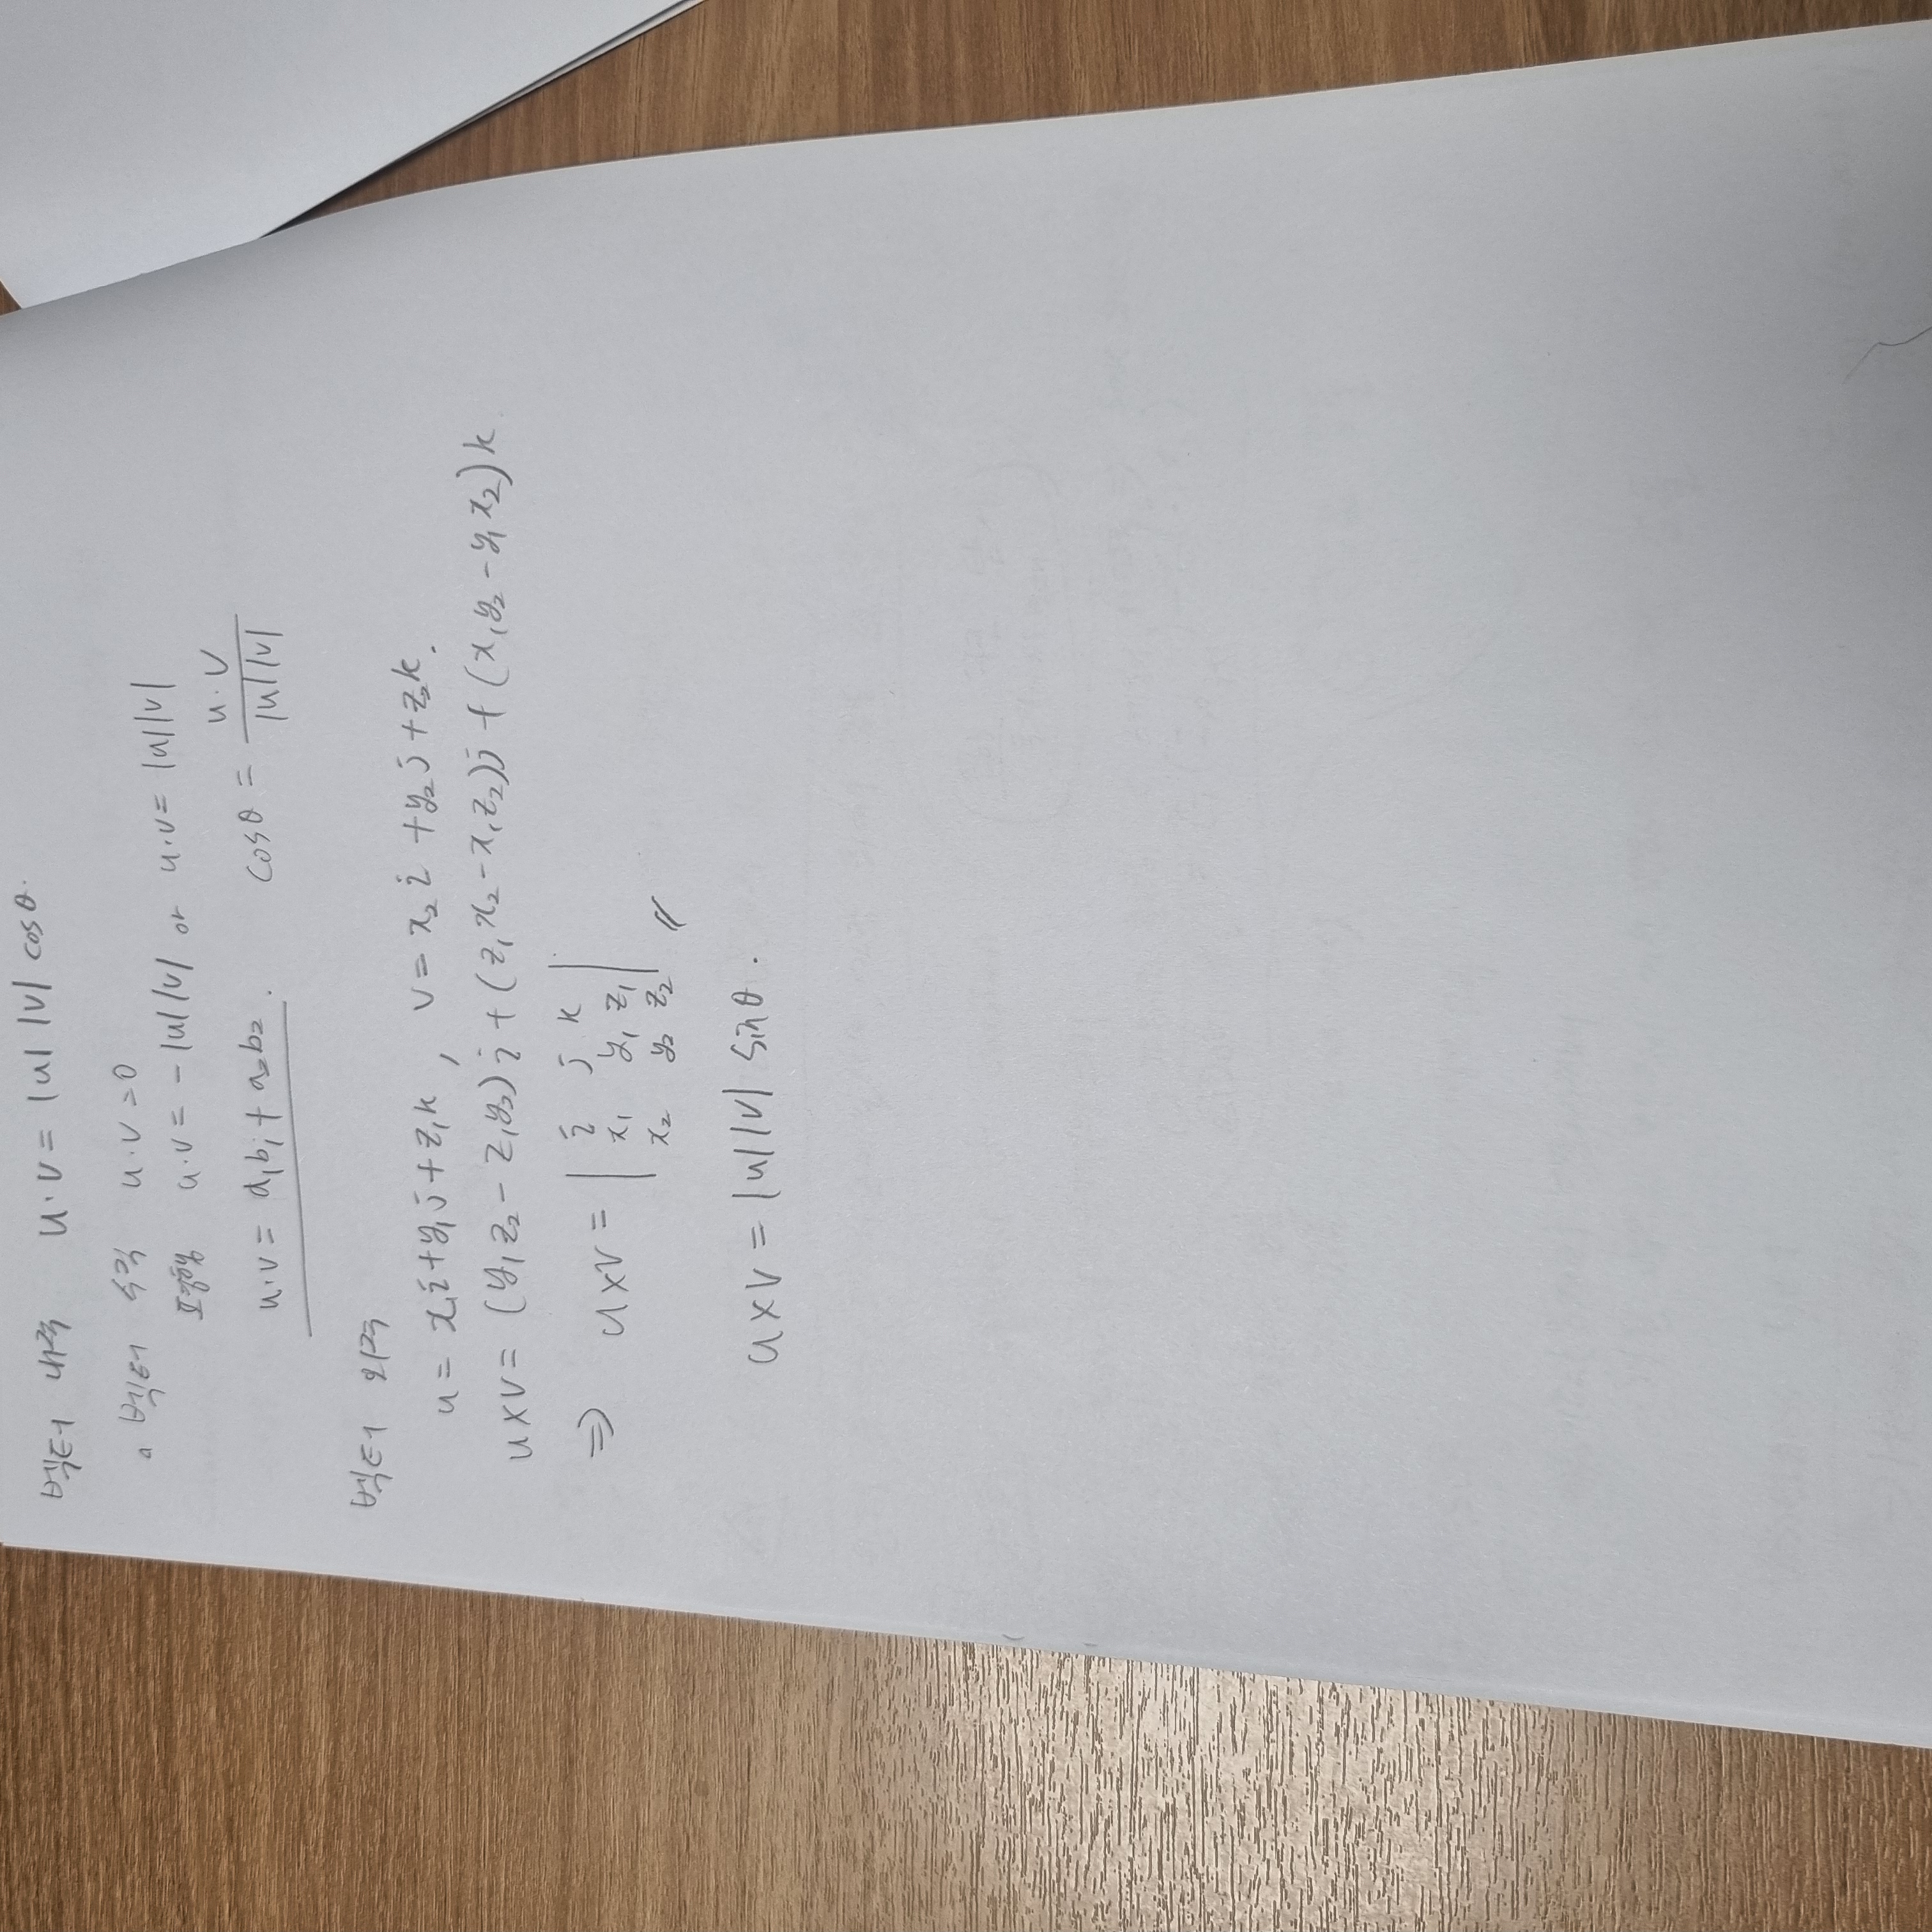 벡터 내적 u·v = |u| |v| cosθ.
벡터 수직 u·v = 0
평행 u·v = -|u||v| or u·v = |u||v|
u·v = a₁b₁ + a₂b₂. cosθ = u·v / |u||v|
벡터 외적
u = x₁i + y₁j + z₁k , v = x₂i + y₂j + z₂k.
u×v = (y₁z₂ - z₁y₂)i + (z₁x₂ - x₁z₂)j + (x₁y₂ - y₁x₂)k
⇒ u×v = | i j k |
x₁ y₁ z₁
x₂ y₂ z₂ //
u×v = |u||v| sinθ.